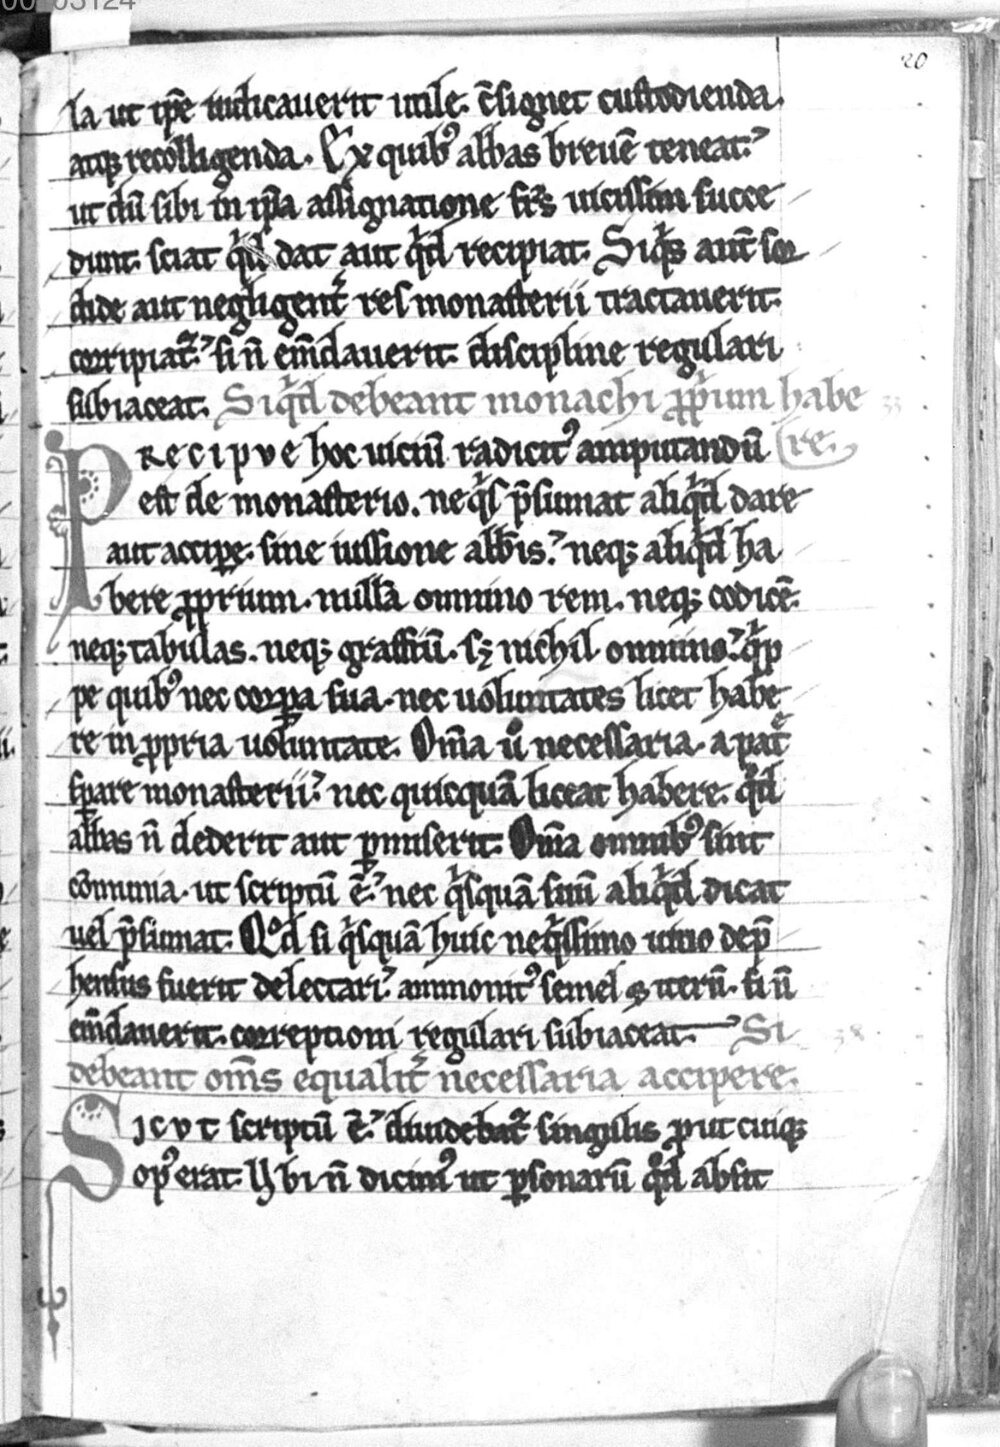 20
la ut ip̄e iudicauerit utile. c̄signet custodienda.
atq; recolligenda. Ex quib᷒ abbas breuē teneat.
ut dū sibi in ip̄a assignatione fr̄s uicissim succe
dunt. sciat qͥd dat aut qͥd recipiat. Siqͥs aut̄ sor
dide aut negligent̄ res monasterii tractauerit.
corripiat᷑. si n̄ em̄dauerit. discipline regulari
subiaceat. Siqͥd debeant monachi ꝓpͥum habe
Precipve hoc uiciū radicit᷒ amputandū re.
est de monasterio. neqͥs p̄sumat aliqͥd dare
aut accipe. sine iussione abb̄is. neq; aliqͥd ha
bere ꝓprium. nullā omnino rem. neq; codicē.
neq; tabulas. neq; graffiū. sꝫ nichil omnino. qͥp
pe quib᷒ nec corꝑa sua. nec uoluntates licet habe
re in ꝓpria uoluntate. Om̄a uͦ necessaria. a pat̄
sꝑare monasterii. nec quicquā liceat habere. qͦd
abbas n̄ dederit aut ꝑmiserit. Om̄a omnib᷒ sint
cōmunia. ut scriptū ē. nec qͥsquā suū aliqͥd dicat
uel p̄sumat. Qͦd si qͥsquā huic neqͥssimo uitio dep̄
hensus fuerit delectari. ammonit᷒ semel & iterū. si n̄
em̄dauerit. correptioni regulari subiaceat. Si
debeant om̄s equalit̄ necessaria accipere.
Sicvt scriptū ē. diuidebat᷑ singulis prout cuiq;
op᷒ erat. Hͥ bi n̄ dicim᷒ ut ꝑsonarū qͦd absit